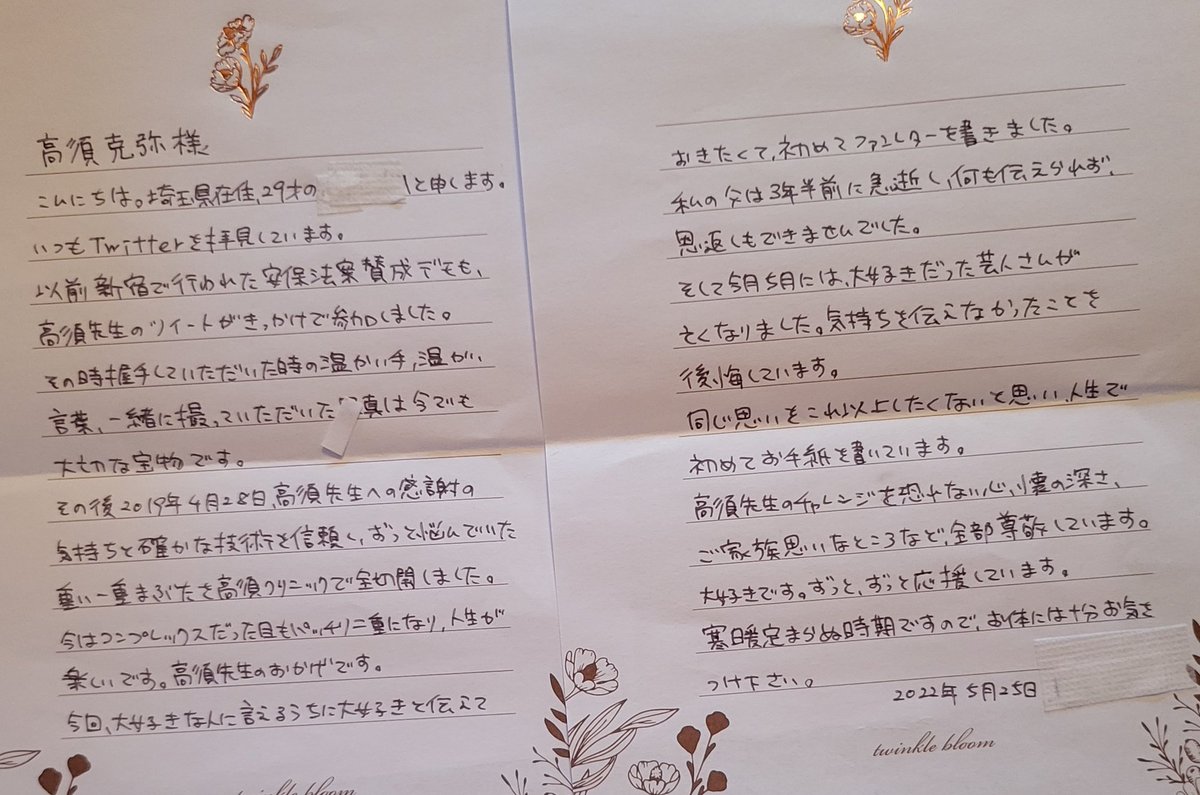 高須克弥様
こんにちは。埼玉県在住、29才の と申します。
いつもTwitterを拝見しています。
以前新宿で行われた安保法案賛成デモも、
高須先生のツイートがきっかけで参加しました。
その時握手していただいた時の温かい手、温かい
言葉、一緒に撮っていただいた 真は今でも
大切な宝物です。
その後2019年4月28日、高須先生への感謝の
気持ちと確かな技術を信頼し、ずっと悩んでいた
重い一重まぶたを高須クリニックで全切開しました。
今はコンプレックスだった目もパッチリ二重になり、人生が
楽しいです。高須先生のおかげです。
今回、大好きな人に言えるうちに大好きと伝えて
twinkle bloom
おきたくて、初めてファンレターを書きました。
私の父は3年半前に急逝し、何も伝えられず、
恩返しもできませんでした。
そして5月5月には、大好きだった芸人さんが
亡くなりました。気持ちを伝えなかったことを
後悔しています。
同じ思いをこれ以上したくないと思い、人生で
初めてお手紙を書いています。
高須先生のチャレンジを恐れない心、懐の深さ、
ご家族思いなところなど、全部尊敬しています。
大好きです。ずっと、ずっと応援しています。
寒暖定まらぬ時期ですので、お体には十分お気を
つけ下さい。
2022年5月25日
twinkle bloom